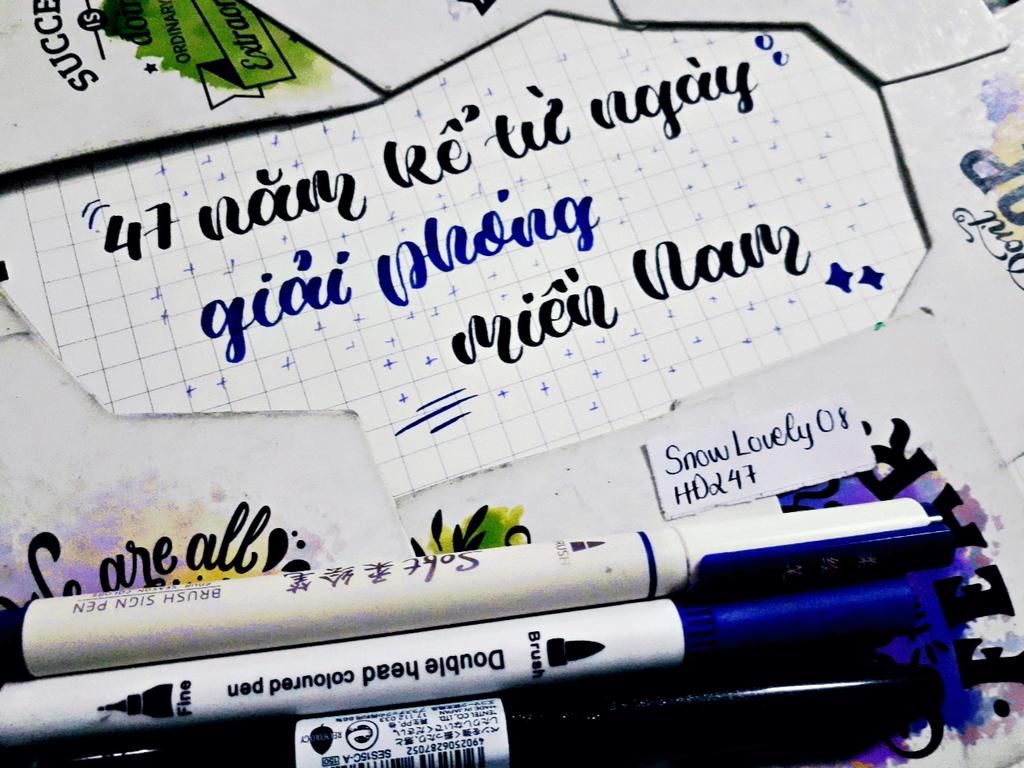 SUCCE
IS
ORDINARY
Extraor
47 năm kể từ ngày
giải phóng
miền Nam
Snow Lovely 08
HD247
are all
Soft 柔绘笔
BRUSH SIGN PEN
BRUSH
Double head coloured pen
Brush
Fine
SES15C-A
4902506287052